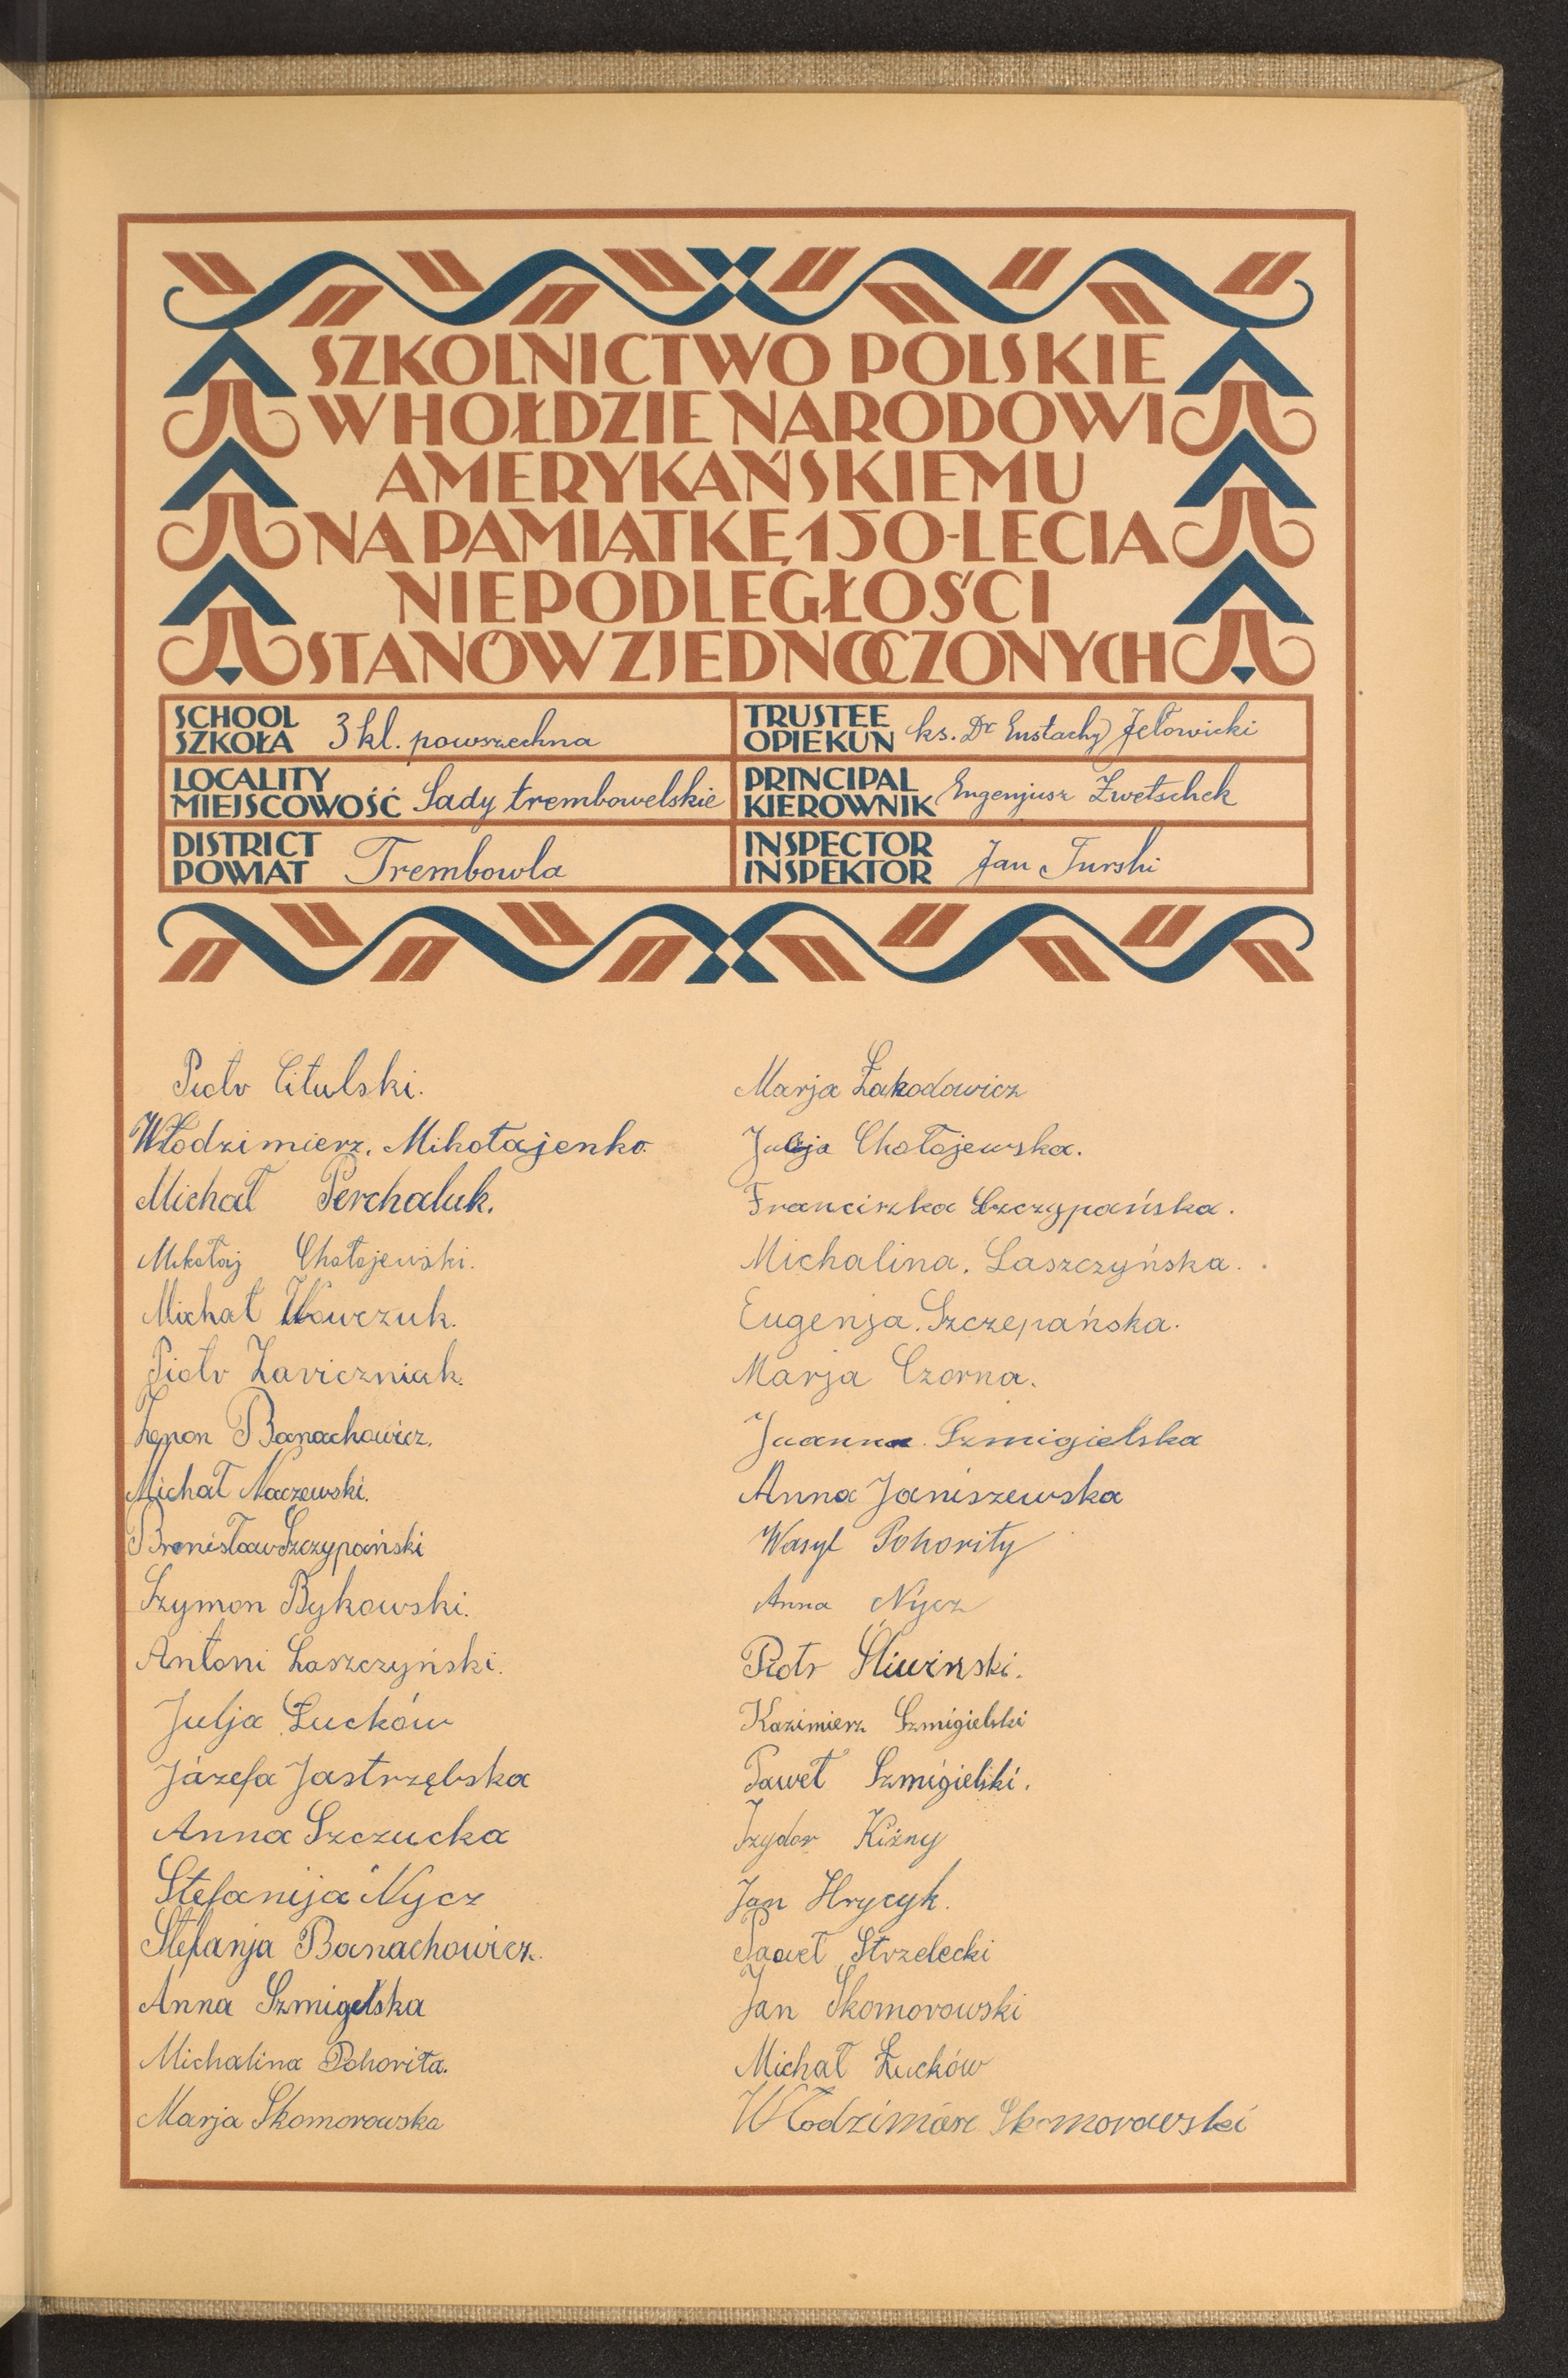 SZKOLNICTWO POLSKIE
W HOŁDZIE NARODOWI
AMERYKAŃSKIEMU
NA PAMIĄTKĘ 150-LECIA
NIEPODLEGŁOŚCI
STANÓW ZJEDNOCZONYCH
SCHOOL
SZKOŁA 3 kl. powszechna
TRUSTEE
OPIEKUN ks. Dr Eustachy Jełowicki
LOCALITY
MIEJSCOWOŚĆ Sady trembowelskie
PRINCIPAL
KIEROWNIK Eugenjusz Zwetschek
DISTRICT
POWIAT Trembowla
INSPECTOR
INSPEKTOR Jan Turski
Piotr Citulski.
Włodzimierz. Mikołajenko.
Michał Perchaluk.
Mikołaj Chołojewski.
Michał Wowczuk.
Piotr Zaviczniak.
Zenon Banachowicz.
Michał Naczewski.
Bronisław Szczypański
Szymon Bykowski.
Antoni Łaszczyński.
Julja Łucków
Józefa Jastrzębska
Anna Szczucka
Stefanija Nycz
Stefanja Banachowicz.
Anna Szmigelska
Michalina Pohoriła.
Marja Skomorowska
Marja Żakodowicz
Julja Chołojewska.
Franciszka Szczypańska.
Michalina. Laszczyńska.
Eugenja. Szczepańska.
Marja Czorna.
Joanna. Szmigielska
Anna Janiszewska
Wasyl Pohoriły
Anna Nycz
Piotr Śliwiński.
Kazimierz Szmigielski
Paweł Szmigielski.
Izydor Kiźny
Jan Hrycyk.
Paweł Strzelecki
Jan Skomorowski
Michał Łucków
Skomorowski